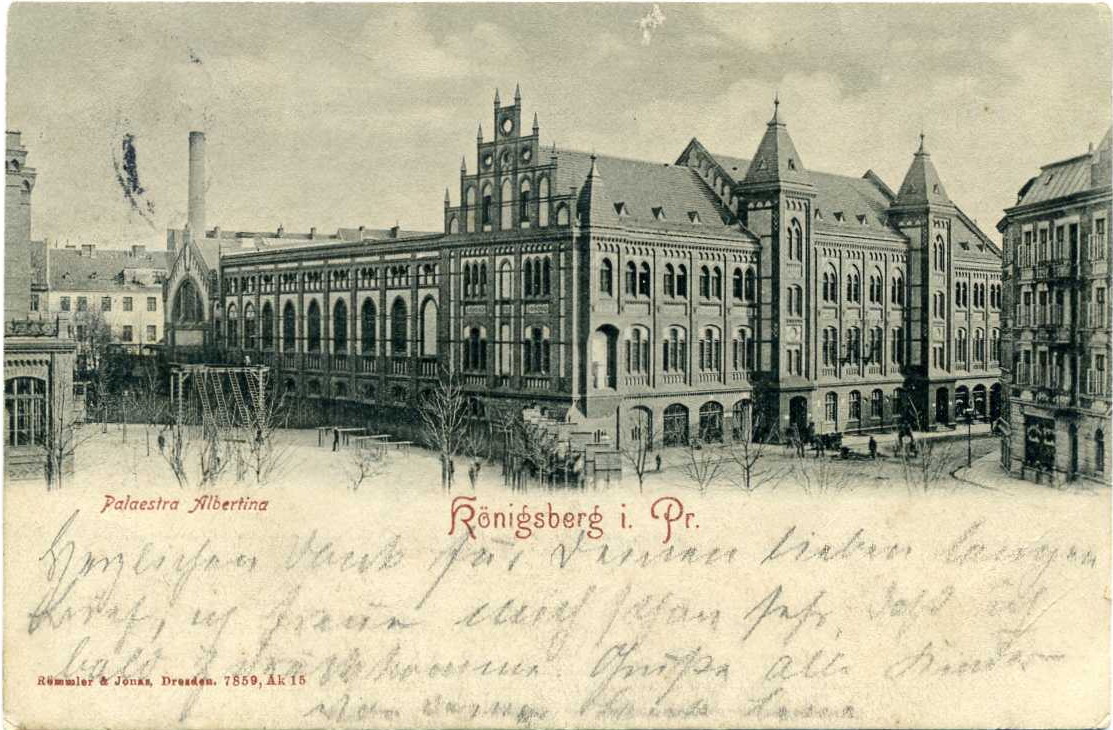 Palaestra Albertina
Königsberg i. Pr.
Herzlichen Dank für Deinen lieben langen
Brief, ich freue mich schon sehr, daß ich
bald zurückkomme Grüße alle Kinder
von
Römmler & Jonas, Dresden. 7859, Ak 15